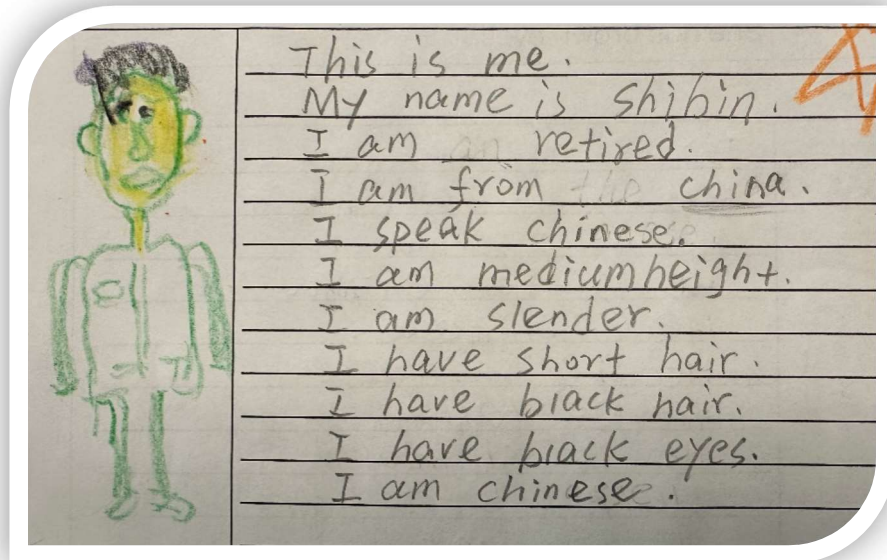 This is me.
My name is shibin.
I am retired.
I am from china.
I speak chinese.
I am mediumheight.
I am slender.
I have short hair.
I have black hair.
I have black eyes.
I am chinese.